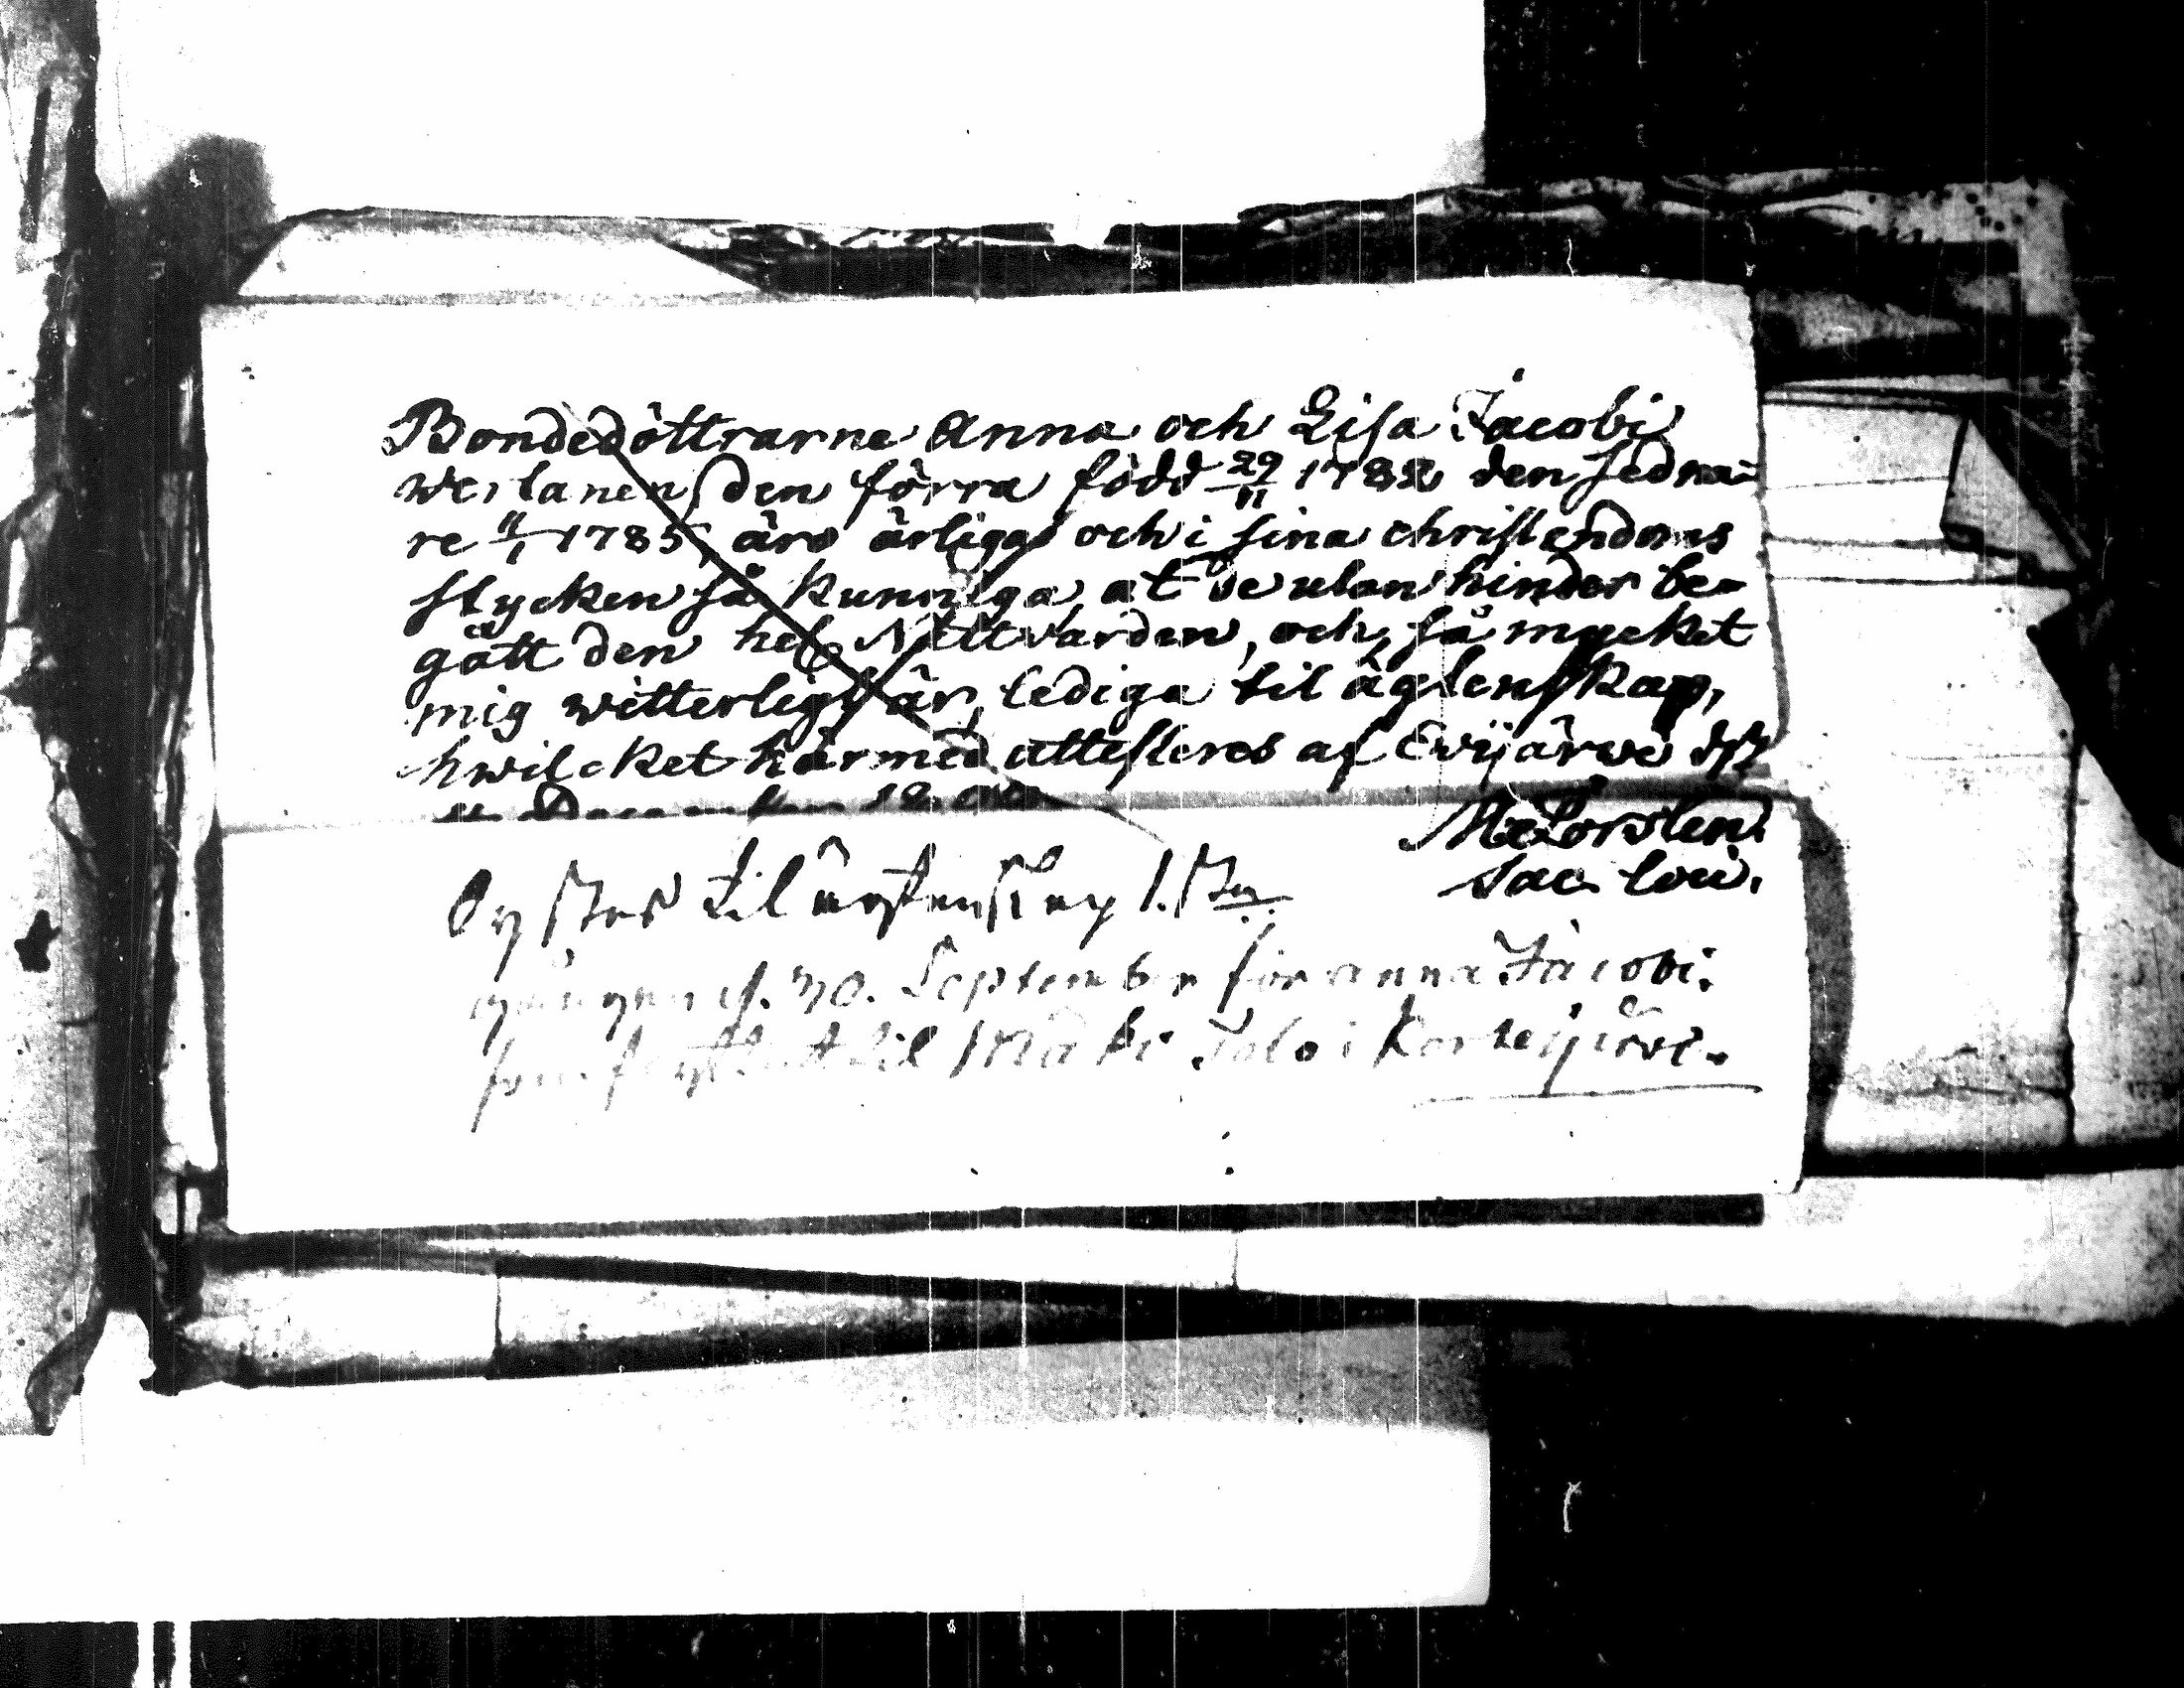 Bondedöttrarne Anna och Lisa Jacobi
wertanen, den förra född 29/11 1782 den sedna=
re 11/1 1785, äro ärliga och i sina christendoms
stycken så kunniga, at de utan hinder be=
gått den hel. Nattvarden, och, så mycket
mig witterligt är, lediga til ägtenskap,
hwilcket härmed attesteres af Evijärwi
December
Sac. loci.
Lyses til ägtenskap 1.sta
gången d. 30. September för Anna Jacobi.
til Maki Talo i Kortesjärvi.